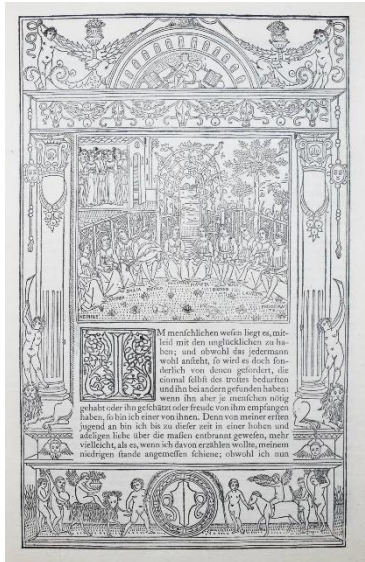 IM menschlichen wesen liegt es, mit-
leid mit den unglücklichen zu ha-
ben; und obwohl das jedermann
wohl ansteht, so wird es doch son-
derlich von denen gefordert, die
einmal selbst des trostes bedurften
und ihn bei andern gefunden haben:
wenn ihn aber je menschen nötig
gehabt oder ihn geschätzt oder freude von ihm empfangen
haben, so bin ich einer von ihnen. Denn von meiner ersten
jugend an bin ich bis zu dieser zeit in einer hohen und
adeligen liebe über die maßen entbrannt gewesen, mehr
vielleicht, als es, wenn ich davon erzählen wollte, meinem
niedrigen stande angemessen schiene; obwohl ich nun